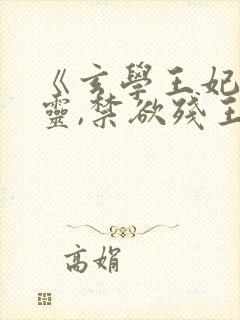 《玄學王妃
靈,禁欲殘王
高娟